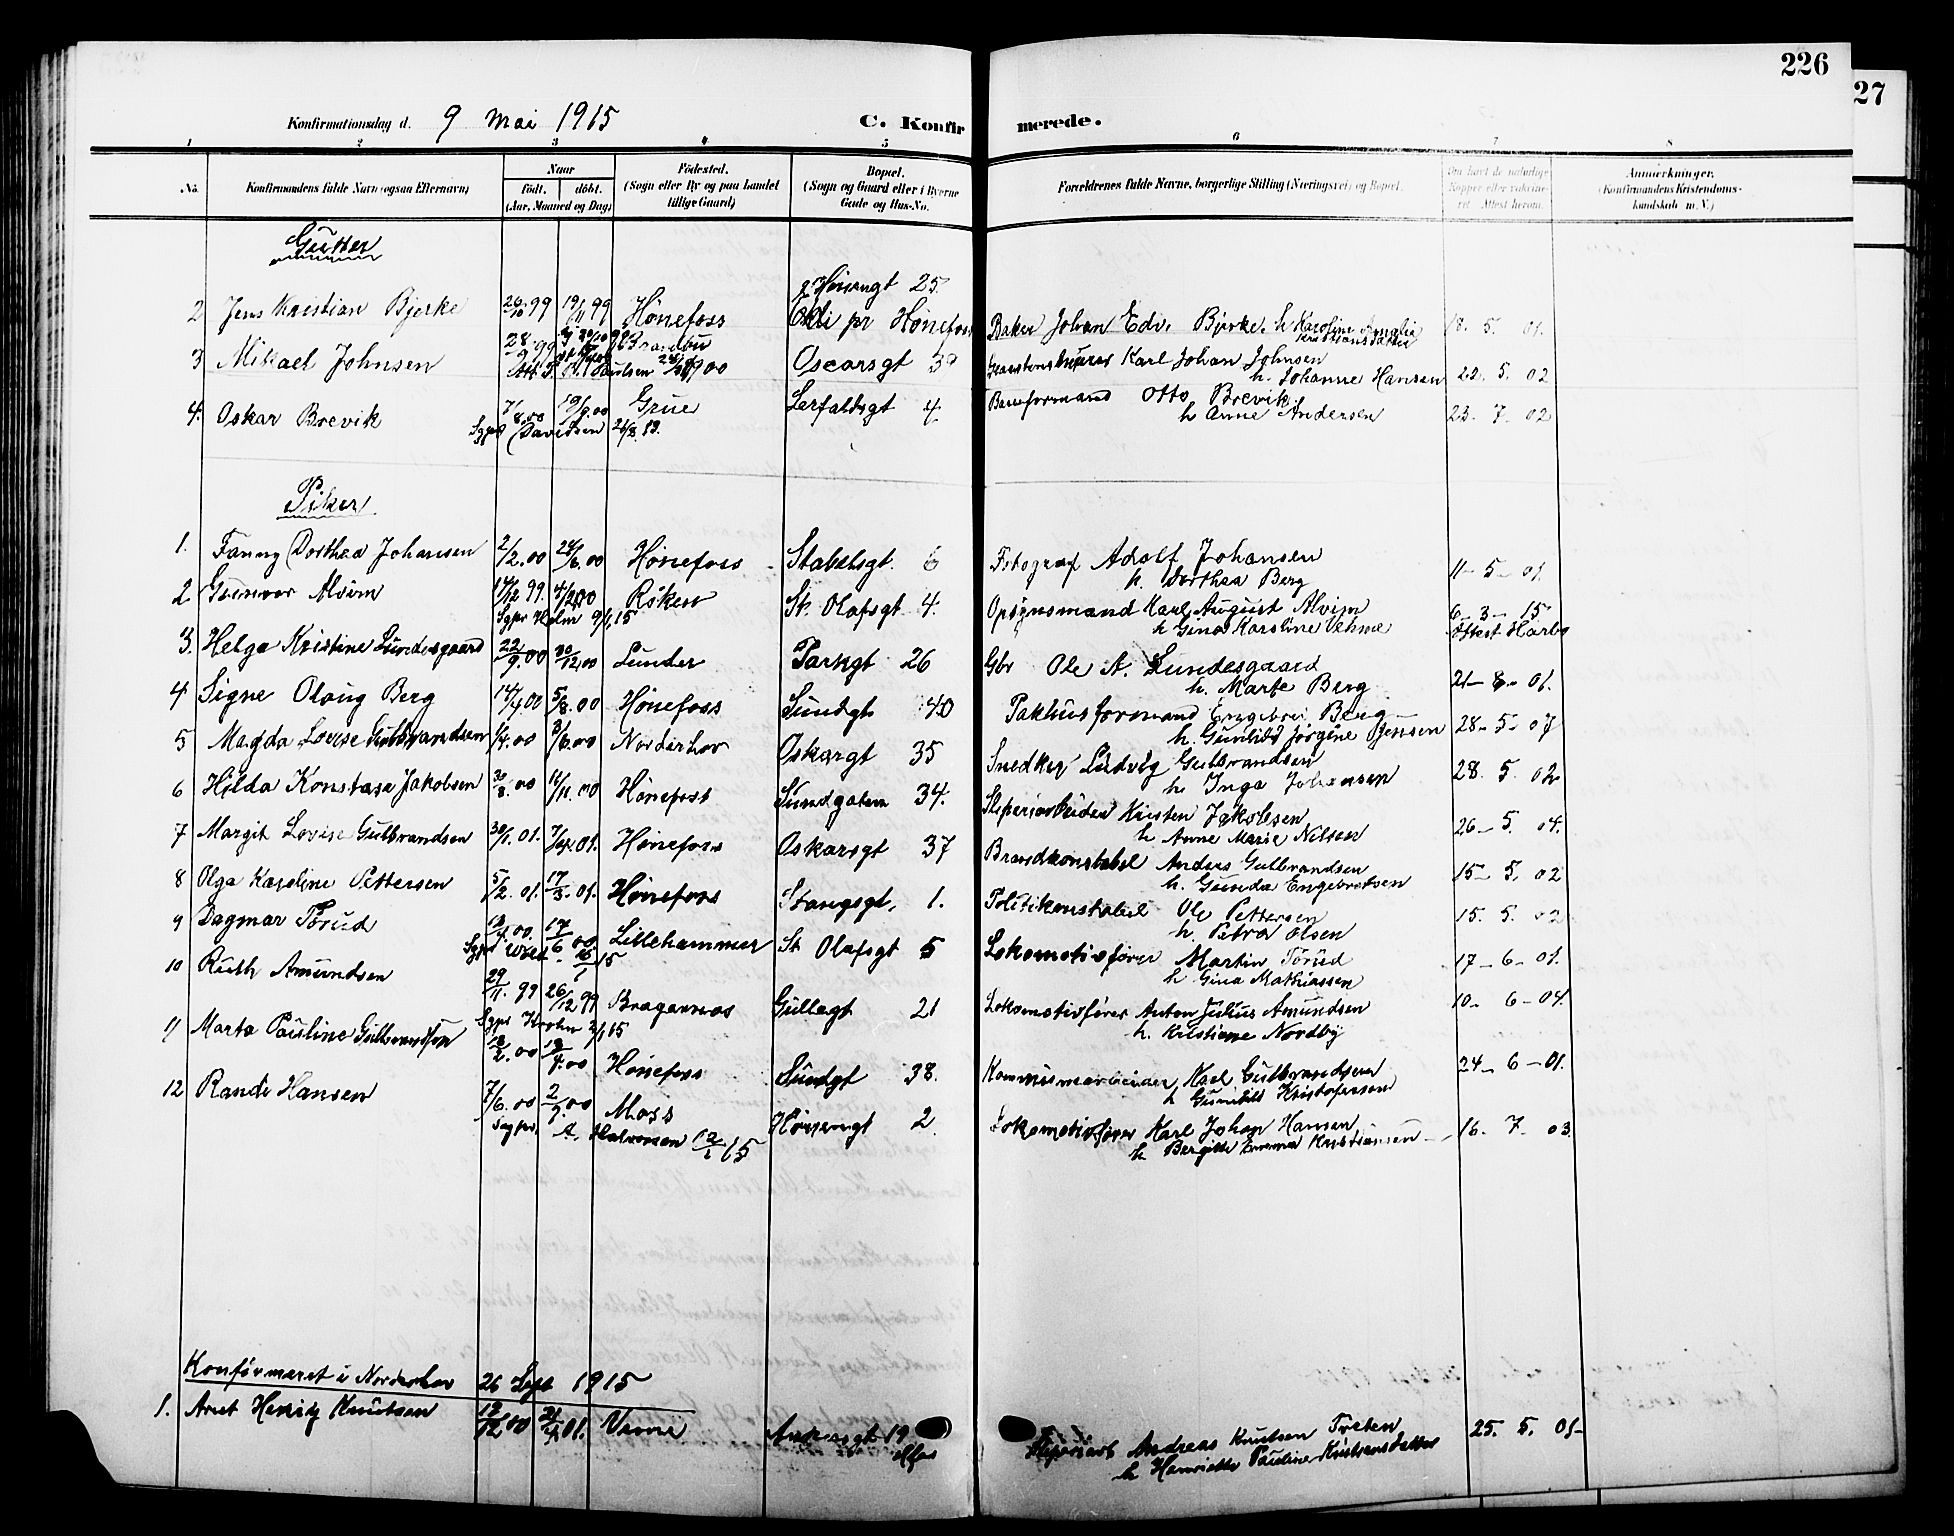 226
27
Konfirmationsdag d. 9 Mai 1915
C. Konfirmerede.
1 2 3 4 5 6 7 8
No.
Konfirmandens fulde Navn (ogsaa Efternavn)
Naar
født. døbt.
(Aar, Maaned og Dag)
Fødested.
(Sogn eller By og paa Landet
tillige Gaard)
Bopæl.
(Sogn og Gaard eller i Byerne
Gade og Hus-No.
Forældrenes fulde Navne, borgerlige Stilling (Næringsvei) og Bopæl.
Om havt de naturlige
Kopper eller vaccineret
Attest herom.
Anmærkninger.
(Konfirmandens Kristendomskundskab
m. V.)
Gutter
Hønengt 25
2 Jens Kristian Bjerke 26/10 99 19/11 99 Hønefoss pr Hønefoss Baker Johan Edv. Bjerke. h Karoline Amalie 18. 5. 01.
Kristiansdatter
3 Mikael Johnsen 28/9 99 Brandbu Oscarsgt Karl Johan Johnsen
h. Johanne Hansen 22. 5. 02
4. Oskar Brevik 7/8 00 19/9 00 Grue Lerfaldsgt 4. Baneformand Otto Brevik
h Anne Andersen 23. 7. 02
Davidsen
Piker
1. Fanny Dorthea Johansen 2/2.00 24/6.00 Hønefoss Stabelsgt. 6 Fotograf Adolf Johansen
h. Dorthea Berg 11- 5- 01.
2 Gunvor Alvim 17/12 99. Røken St. Olafsgt 4. Opsynsmand Karl August Alvim 6- 3- 15
Sgpr Holm 9/1 15 h Gina Karoline Vehme Attest Harbo
3. Helga Kristine Lundesgaard 22/9.00 30/12.00 Lunder Parkgt 26 Gbr Ole A. Lundesgaard
h. Marte Berg 21- 8- 01.
4 Signe Olaug Berg 14/4.00 5/8.00 Hønefoss Sundgt 40 Pakhusformand Engebret Berg
h. Gunhild Jørgine Jensen 28- 5- 07
5 Magda Lovise Gulbrandsen 1/4.00 3/6.00 Norderhov Oskargt 35 Snedker Ludvig Gulbrandsen
h. Inga Johansen 28. 5. 02
6 Hilda Konstase Jakobsen 30/8.00 11/11.00 Hønefoss Sundgaten 34. Sliperiarbeider Kristen Jakobsen
h Anne Marie Nilsen 26- 5. 04.
7 Margit Lovise Gulbrandsen 30/1.01. 7/4.01. Hønefoss Oskarsgt 37 Brandkonstabel Anders Gulbrandsen
h. Gunda Engebretsen 15- 5. 02
8 Olga Karoline Pettersen 5/2.01. 17/3.01. Hønefoss Stangsgt. 1. Politikonstabel Ole Pettersen
h. Petra Olsen 15. 5. 02
9 Dagmar Torud 17/6 00 Lillehammer St Olafsgt 5 Lokomotivfører Martin Torud
h Gina Mathiassen 17- 6- 01.
10 Ruth Amundsen 29/11. 99 26/12 99 Bragernes Gullagt 21 Lokomotivfører Anton Julius Amundsen
h. Kristiane Nordby 10- 6- 04.
11 Marta Pauline Gulbrandsen 18/2.00 Hønefoss Sundgt 38. Kommunearbeider Karl Gulbrandsen
h Gunhild Kristofersen 24- 6- 01.
12 Randi Hansen 7/6.00 2/9.00 Moss Hønengt 2 Lokomotivfører Karl Johan Hansen
h Bergitte Kristiansen 16. 7. 03.
Sogpr. A. Halvorsen 12/1 15
Konfirmeret i Norderhov 26 Sept 1915
1. Arnt Henrik Knutsen 17/12 00 Viane 19 Sliperiarb Andreas Knutsen Tveten
h Henriette Pauline Kristiansdatter 25. 5. 01-